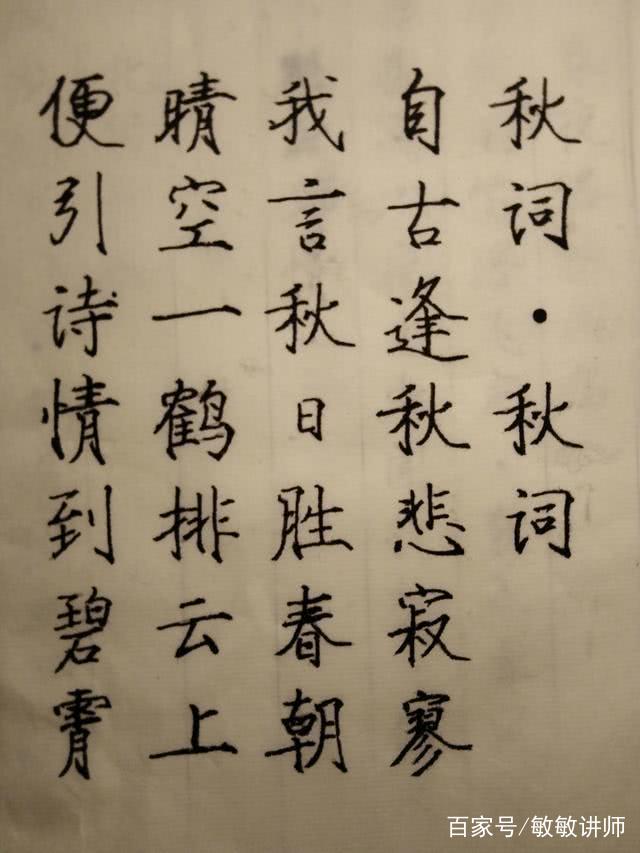 秋词·秋词
自古逢秋悲寂寥
我言秋日胜春朝
晴空一鹤排云上
便引诗情到碧霄
百家号/敏敏讲师